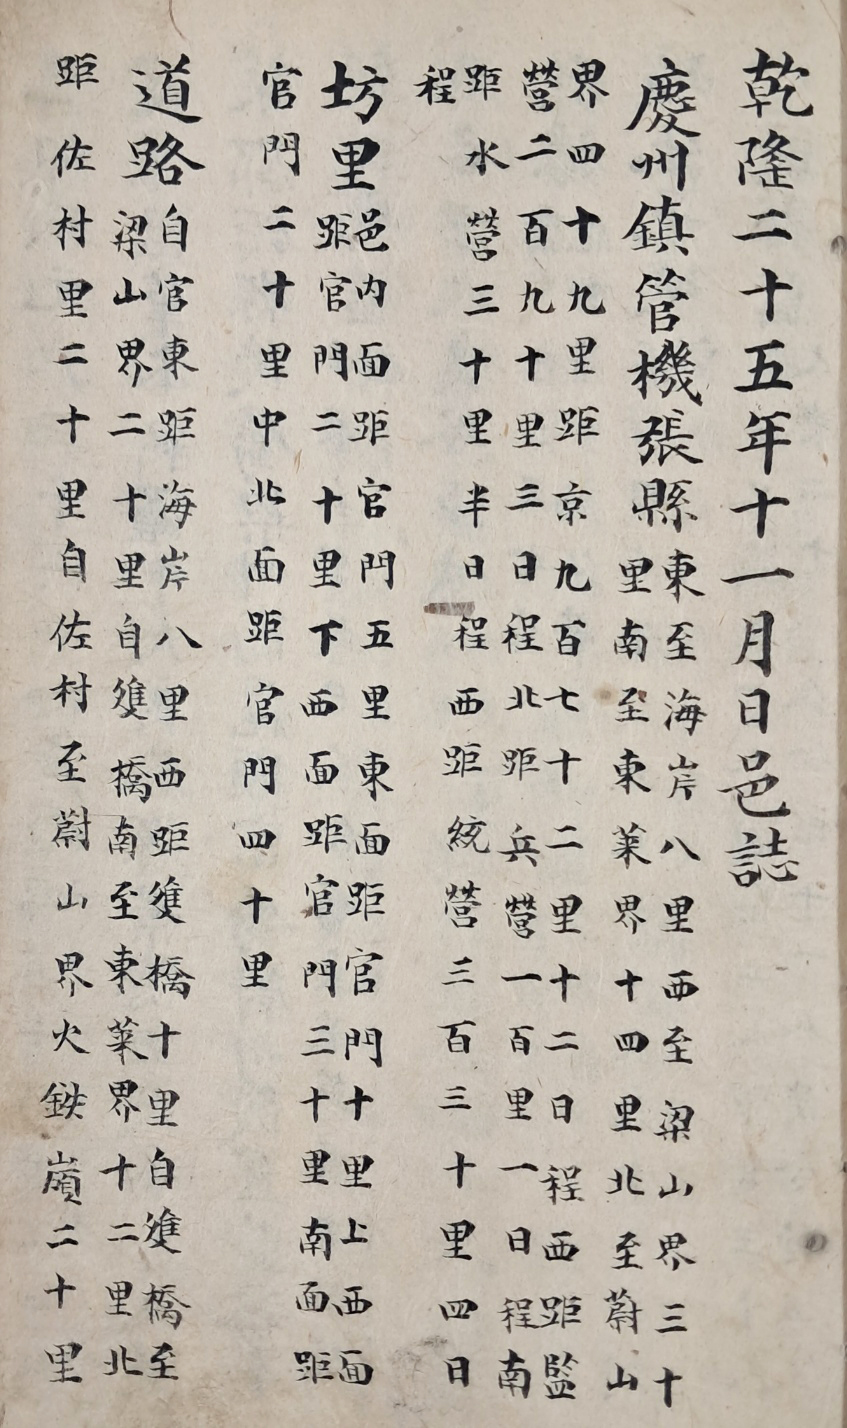 乾隆二十五年十一月日邑誌
慶州鎮管機張縣東至海岸八里西至梁山界三十
里南至東萊界十四里北至蔚山
界四十九里距京九百七十二里十二日程西距監
營二百九十里三日程北距兵營一百里一日程南
距水營三十里半日程西距統營三百三十里四日
程
坊里邑內面距官門五里東面距官門十里上西面
距官門二十里下西面距官門三十里南面距
官門二十里中北面距官門四十里
道路自官東距海岸八里西距雙橋十里自雙橋至
梁山界二十里自雙橋南至東萊界十二里北
距佐村里二十里自佐村至蔚山界火鉄嶺二十里